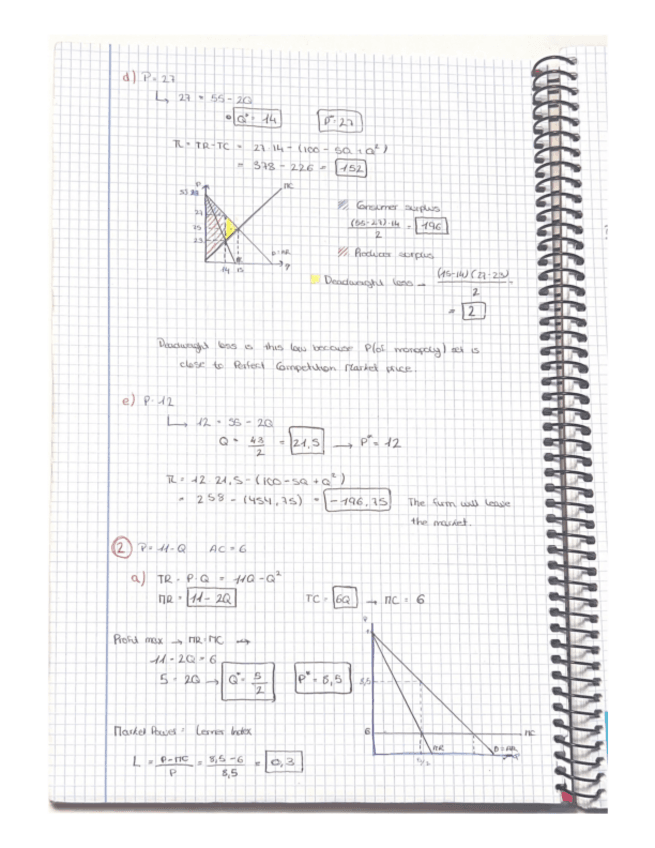 d) P = 27
↳ 27 = 55 - 2Q
Q* = 14    P* = 27
π = TR - TC = 27·14 - (100 - 5Q + Q²)
= 378 - 226 = 152
P
MC
55
27
25
23
14 15
D=AR
Q
Consumer surplus
(55-27)·14 / 2 = 196
Producer surplus
Deadweight loss → (15-14)(27-23) / 2
= 2
Deadweight loss is this low because P(of monopoly) set is
close to Perfect Competition Market price.
e) P = 12
↳ 12 = 55 - 2Q
Q = 43/2 = 21,5 → P* = 12
π = 12·21,5 - (100 - 5Q + Q²)
= 258 - (454,75) = -196,75    The firm will leave
the market.
② P = 11 - Q    AC = 6
a) TR = P·Q = 11Q - Q²
MR = 11 - 2Q    TC = 6Q → MC = 6
Profit max → MR = MC →
11 - 2Q = 6
5 = 2Q → Q* = 5/2    P* = 8,5
8,5
6
MC
MR
D=AR
5/2
Market Power: Lerner Index
L = P-MC / P = 8,5-6 / 8,5 = 0,3